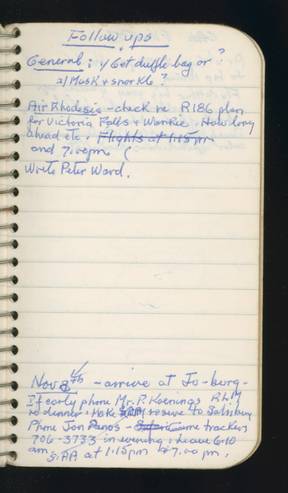 Follow ups
General: 1/ Get duffle bag or ?
2/ Mask & snorkle ?
Air Rhodesia - check re R186 plan
for Victoria Falls & Wankie. How long
ahead etc. Flights at 1:15pm
and 7:00pm (
Write Peter Ward.
Nov 8th - arrive at Jo-burg-
If early phone Mr. P. Koenings RLM
re dinner. Make SAA reserve to Salisbury
Phone Jon Panos - trackers
706-3733 in evening. Leave 6:10
am SAA at 1:15pm & 7:00 pm.